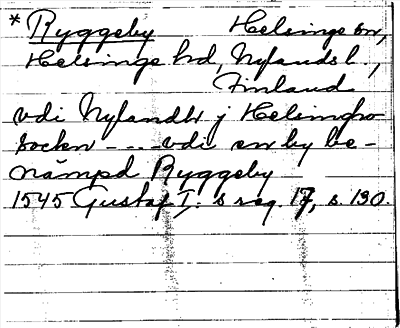 * Ryggeby Helsinge sn,
Helsinge hd, Nylands l.,
Finland
vdi Nylandh j Helsingho
sockn - - - vdi en by be-
nämpd Ryggeby
1545 Gustaf I:s reg. 17, s. 130.